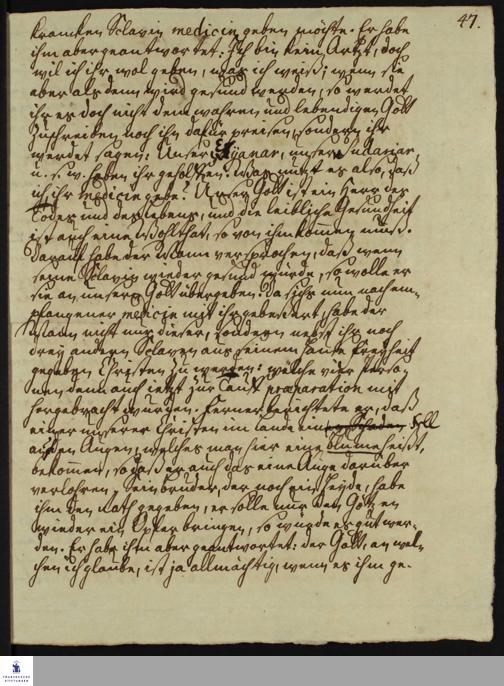 47.
krancken Sclavin medicin geben möchte. Er habe
ihm aber geantwortet: Ich bin kein Artzt, doch
wil ich ihr wol geben, was ich weiß; wenn sie
aber als denn wird gesund werden, so werdet
ihr es doch nicht dem wahren und lebendigen Gott
zuschreiben noch ihn dafür preisen, sondern ihr
werdet sagen: Unsere Eyanar, unsere Sudaciar
u. s. w. haben ihr geholffen: Was nutzt es also, daß
ich ihr medicin gebe? Unser Gott ist ein Herr des
Todes und des Lebens, und die leibliche Gesundheit
ist auch eine Wohlthat, so von ihm kommen muß.
Darauf habe der Mann versprochen, daß wenn
seine Sclavin wieder gesund würde, so wolle er
sie an unsern Gott übergeben. Da sichs nun nach em-
pfangener medicin mit ihr gebessert, habe der
Mann nicht nur dieser, sondern nebst ihr noch
drey andern Sclaven aus seinem Hause Freyheit
gegeben Christen zu werden: welche vier Perso-
nen denn auch ietzt zur Tauff praeparation mit
hergebracht wurden. Ferner berichtete er, daß
einer unserer Christen im Lande Fell
auf den Augen, welches man hier eine Blume heißt,
bekommen, so daß er auch das eine Auge darüber
verlohren. Sein Bruder, der noch ein Heyde, habe
ihm den Rath gegeben, er solle nur den Götzen
wieder ein Opfer bringen, so würde es gut wer-
den. Er habe ihm aber geantwortet: der Gott, an wel-
chen ich glaube, ist ja allmächtig, wenn es ihm ge-
FRANCKESCHE
STIFTUNGEN